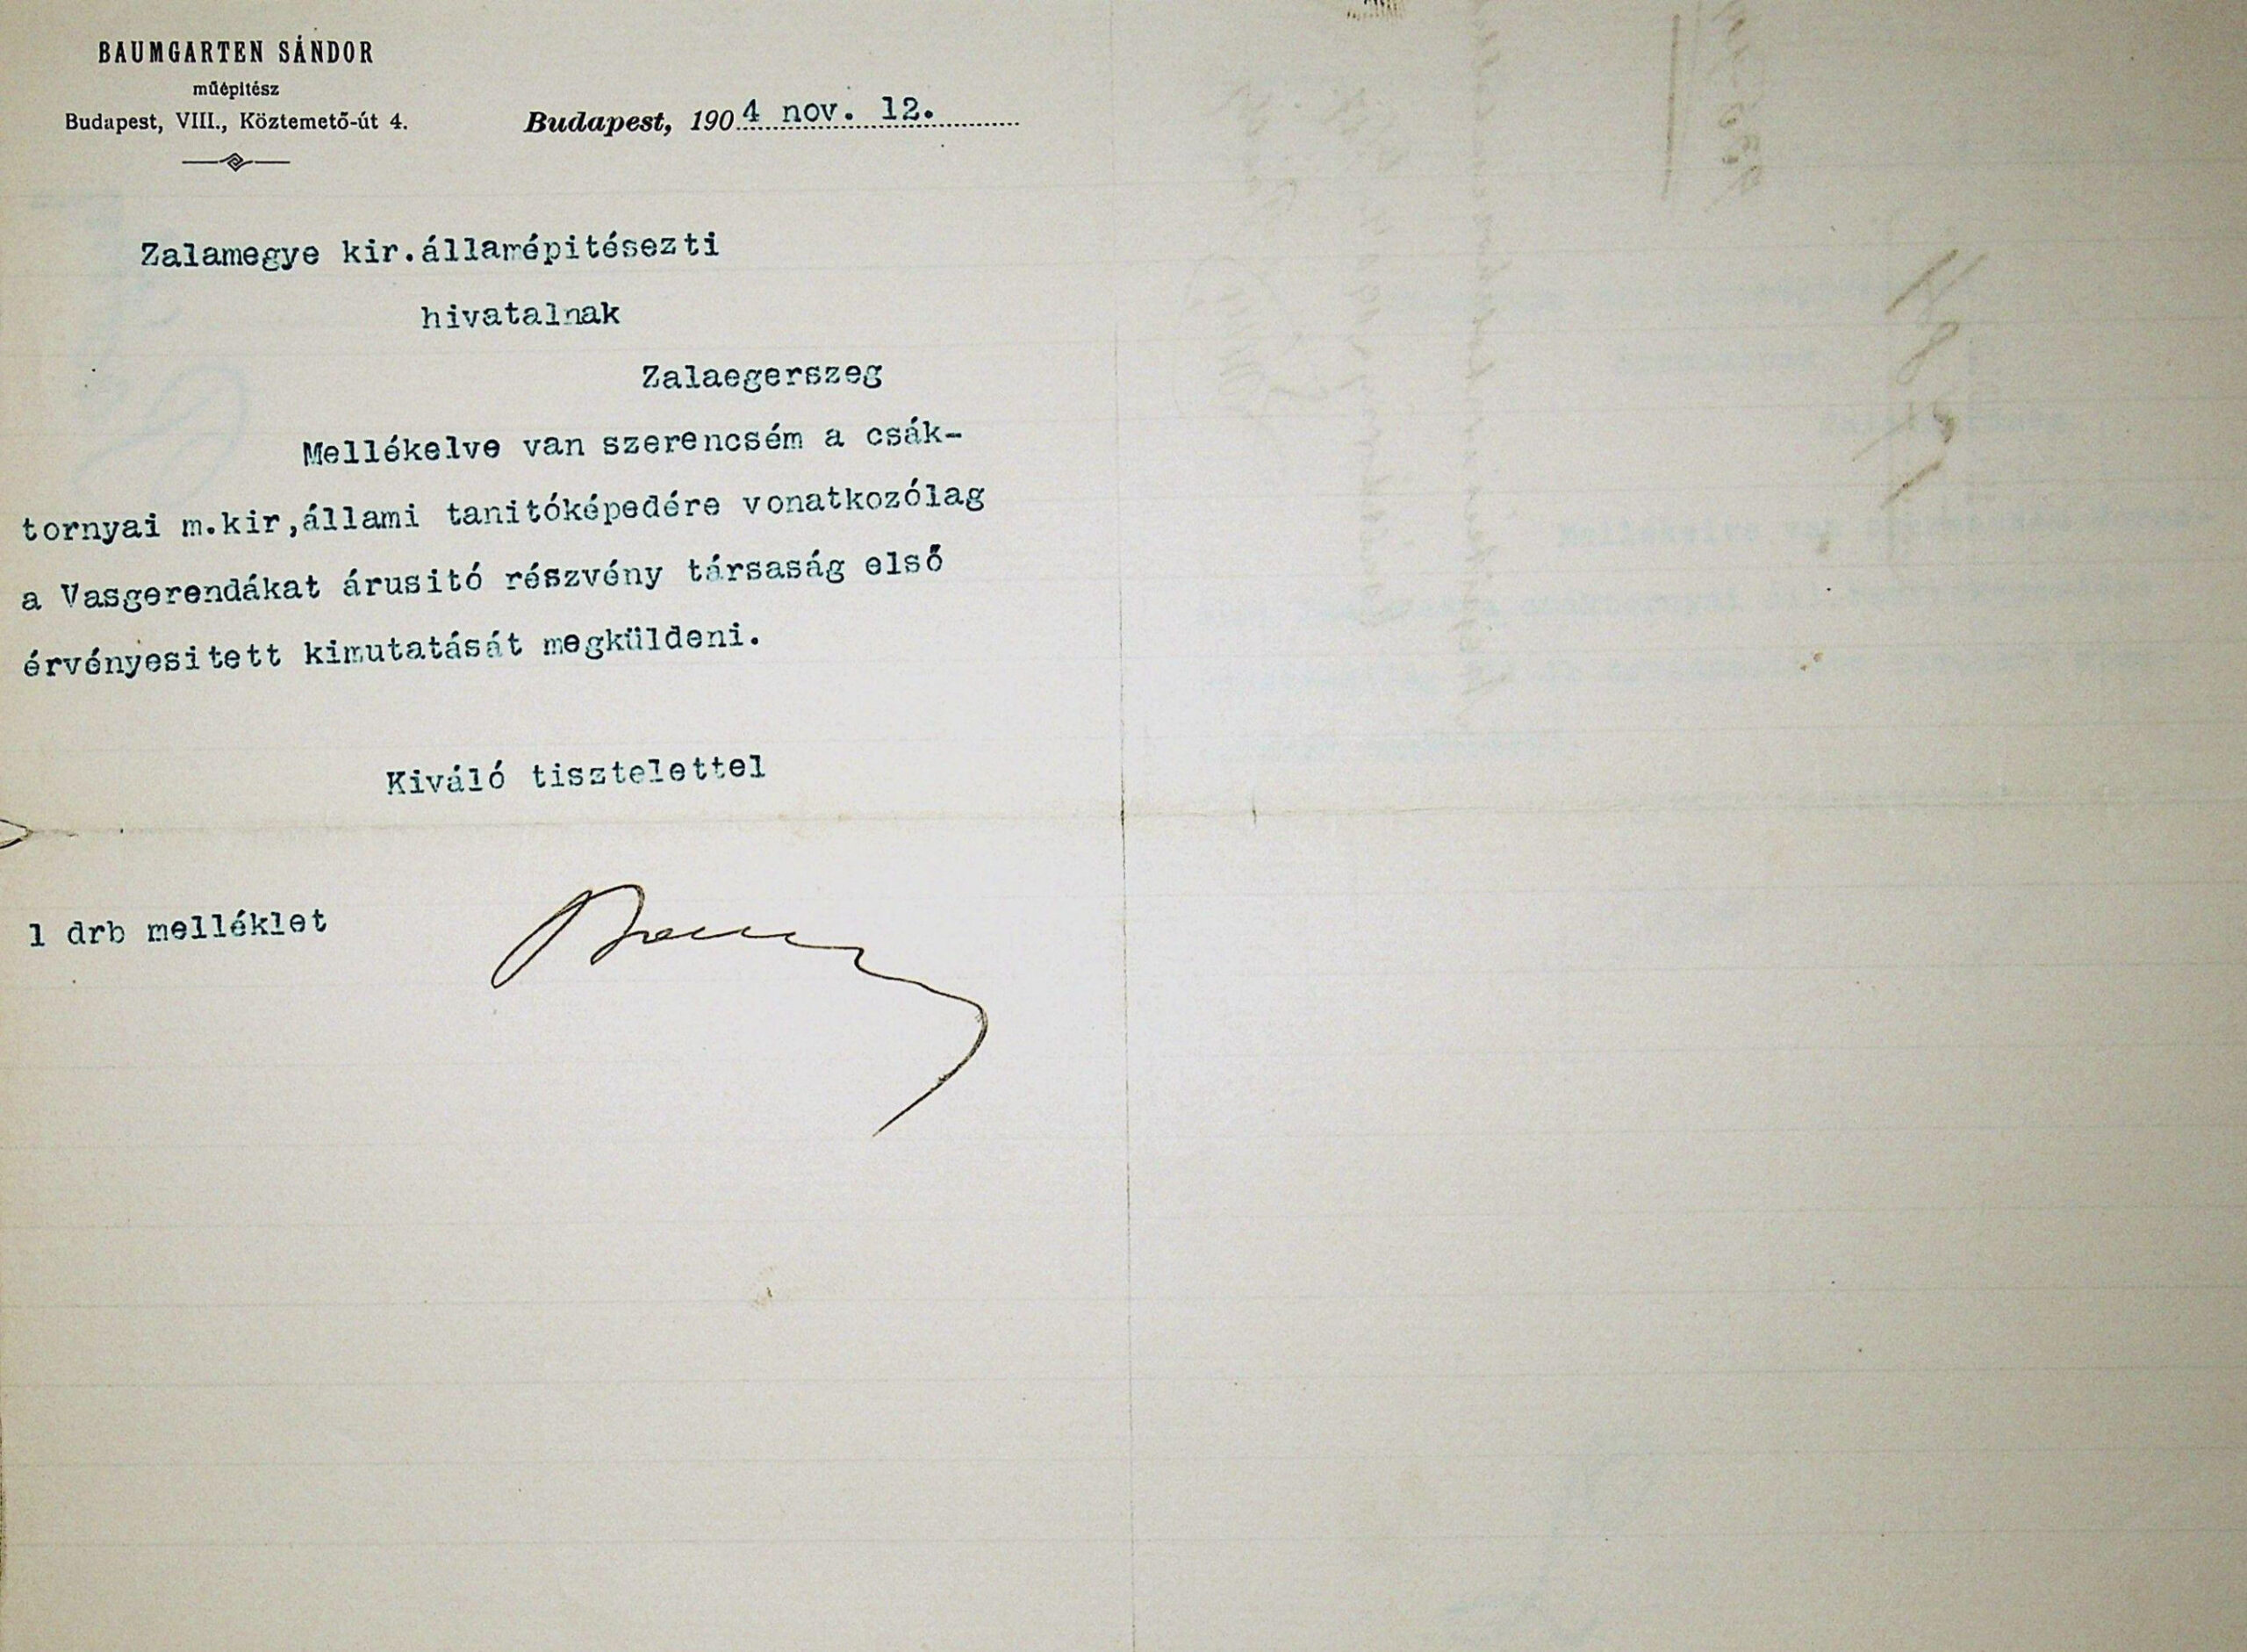 BAUMGARTEN SÁNDOR
műépitész
Budapest, VIII., Köztemető-út 4.
Budapest, 1904 nov. 12.
Zalamegye kir.államépitésezti
hivatalnak
Zalaegerszeg
Mellékelve van szerencsém a csák-
tornyai m.kir,állami tanitóképedére vonatkozólag
a Vasgerendákat árusitó részvény társaság első
érvényesitett kimutatását megküldeni.
Kiváló tisztelettel
1 drb melléklet